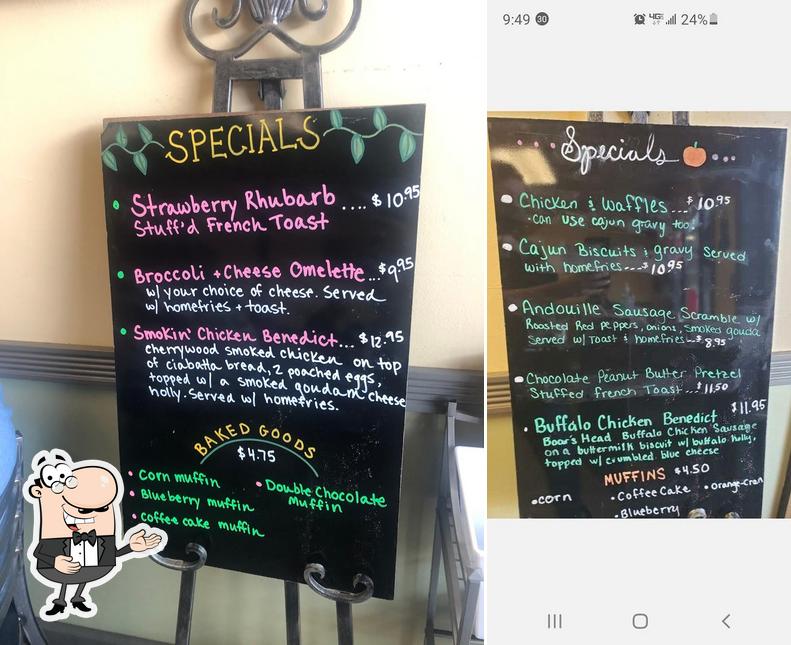 SPECIALS
Strawberry Rhubarb .... $10.95
Stuff'd French Toast
Broccoli + Cheese Omelette... $9.95
w/ your choice of cheese. Served
w/ homefries + toast.
Smokin' Chicken Benedict... $12.95
cherrywood smoked chicken on top
of ciabatta bread, 2 poached eggs,
topped w/ a smoked goudam cheese
holly. Served w/ homefries.
BAKED GOODS
$4.75
Corn muffin
Blueberry muffin
Coffee cake muffin
Double Chocolate
Muffin
9:49 30 4G 24%
Specials
Chicken & Waffles... $10.95
•can use cajun gravy too!
Cajun Biscuits & gravy served
with homefries---$10.95
Andouille Sausage Scramble w/
Roasted Red Peppers, onions, smoked gouda
Served w/ Toast & homefries--$8.95
Chocolate Peanut Butter Pretzel
Stuffed French Toast..$11.50
Buffalo Chicken Benedict $11.95
Boar's Head Buffalo Chicken Sausage
on a buttermilk biscuit w/ buffalo holly,
topped w/ crumbled blue cheese
MUFFINS $4.50
•corn •Coffee Cake •orange-cran
•Blueberry